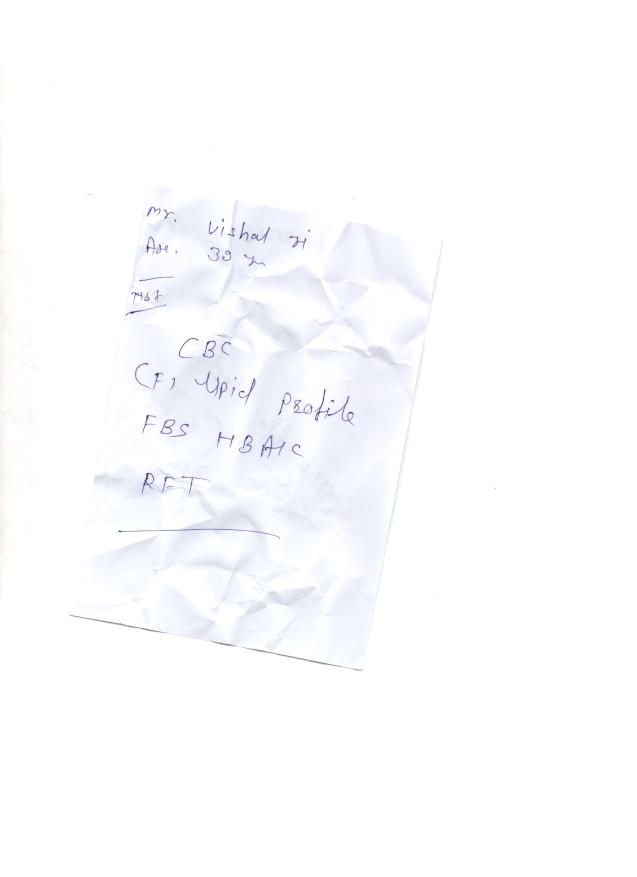 Mr. Vishal ji
Age. 39 yr
Test
CBC
(F) Lipid Profile
FBS HBA1C
RFT